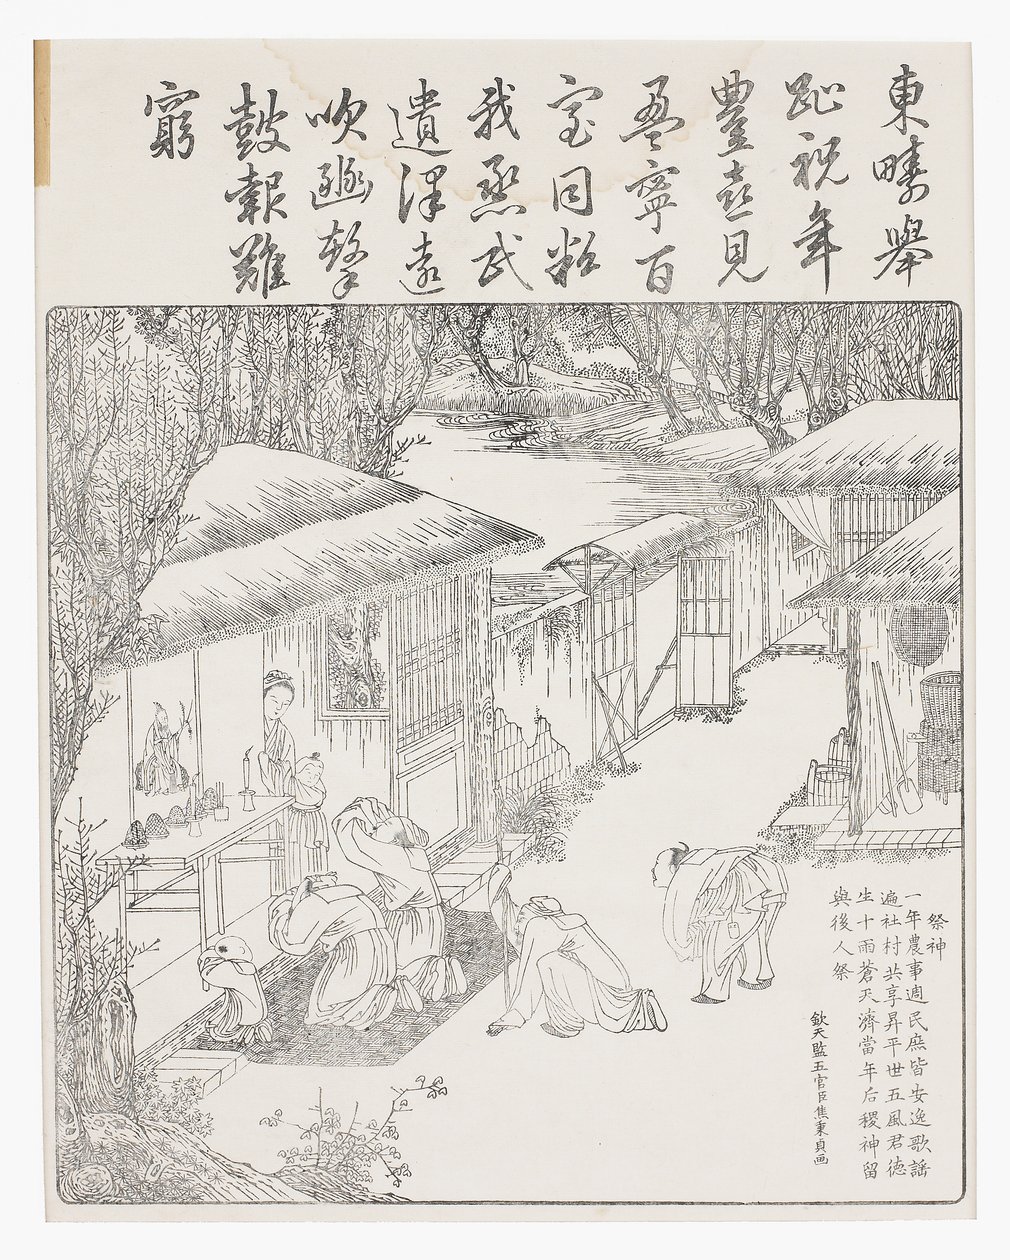 東疇舉
趾祝年
豐喜見
盈寧百
室同粒
我烝民
遺澤遠
吹豳擊
鼓報難
窮
祭神
一年農事週民庶皆安逸歌謠
遍社村共享昇平世五風君德
生十雨蒼天濟當年后稷神留
與後人祭
欽天監五官臣焦秉貞画